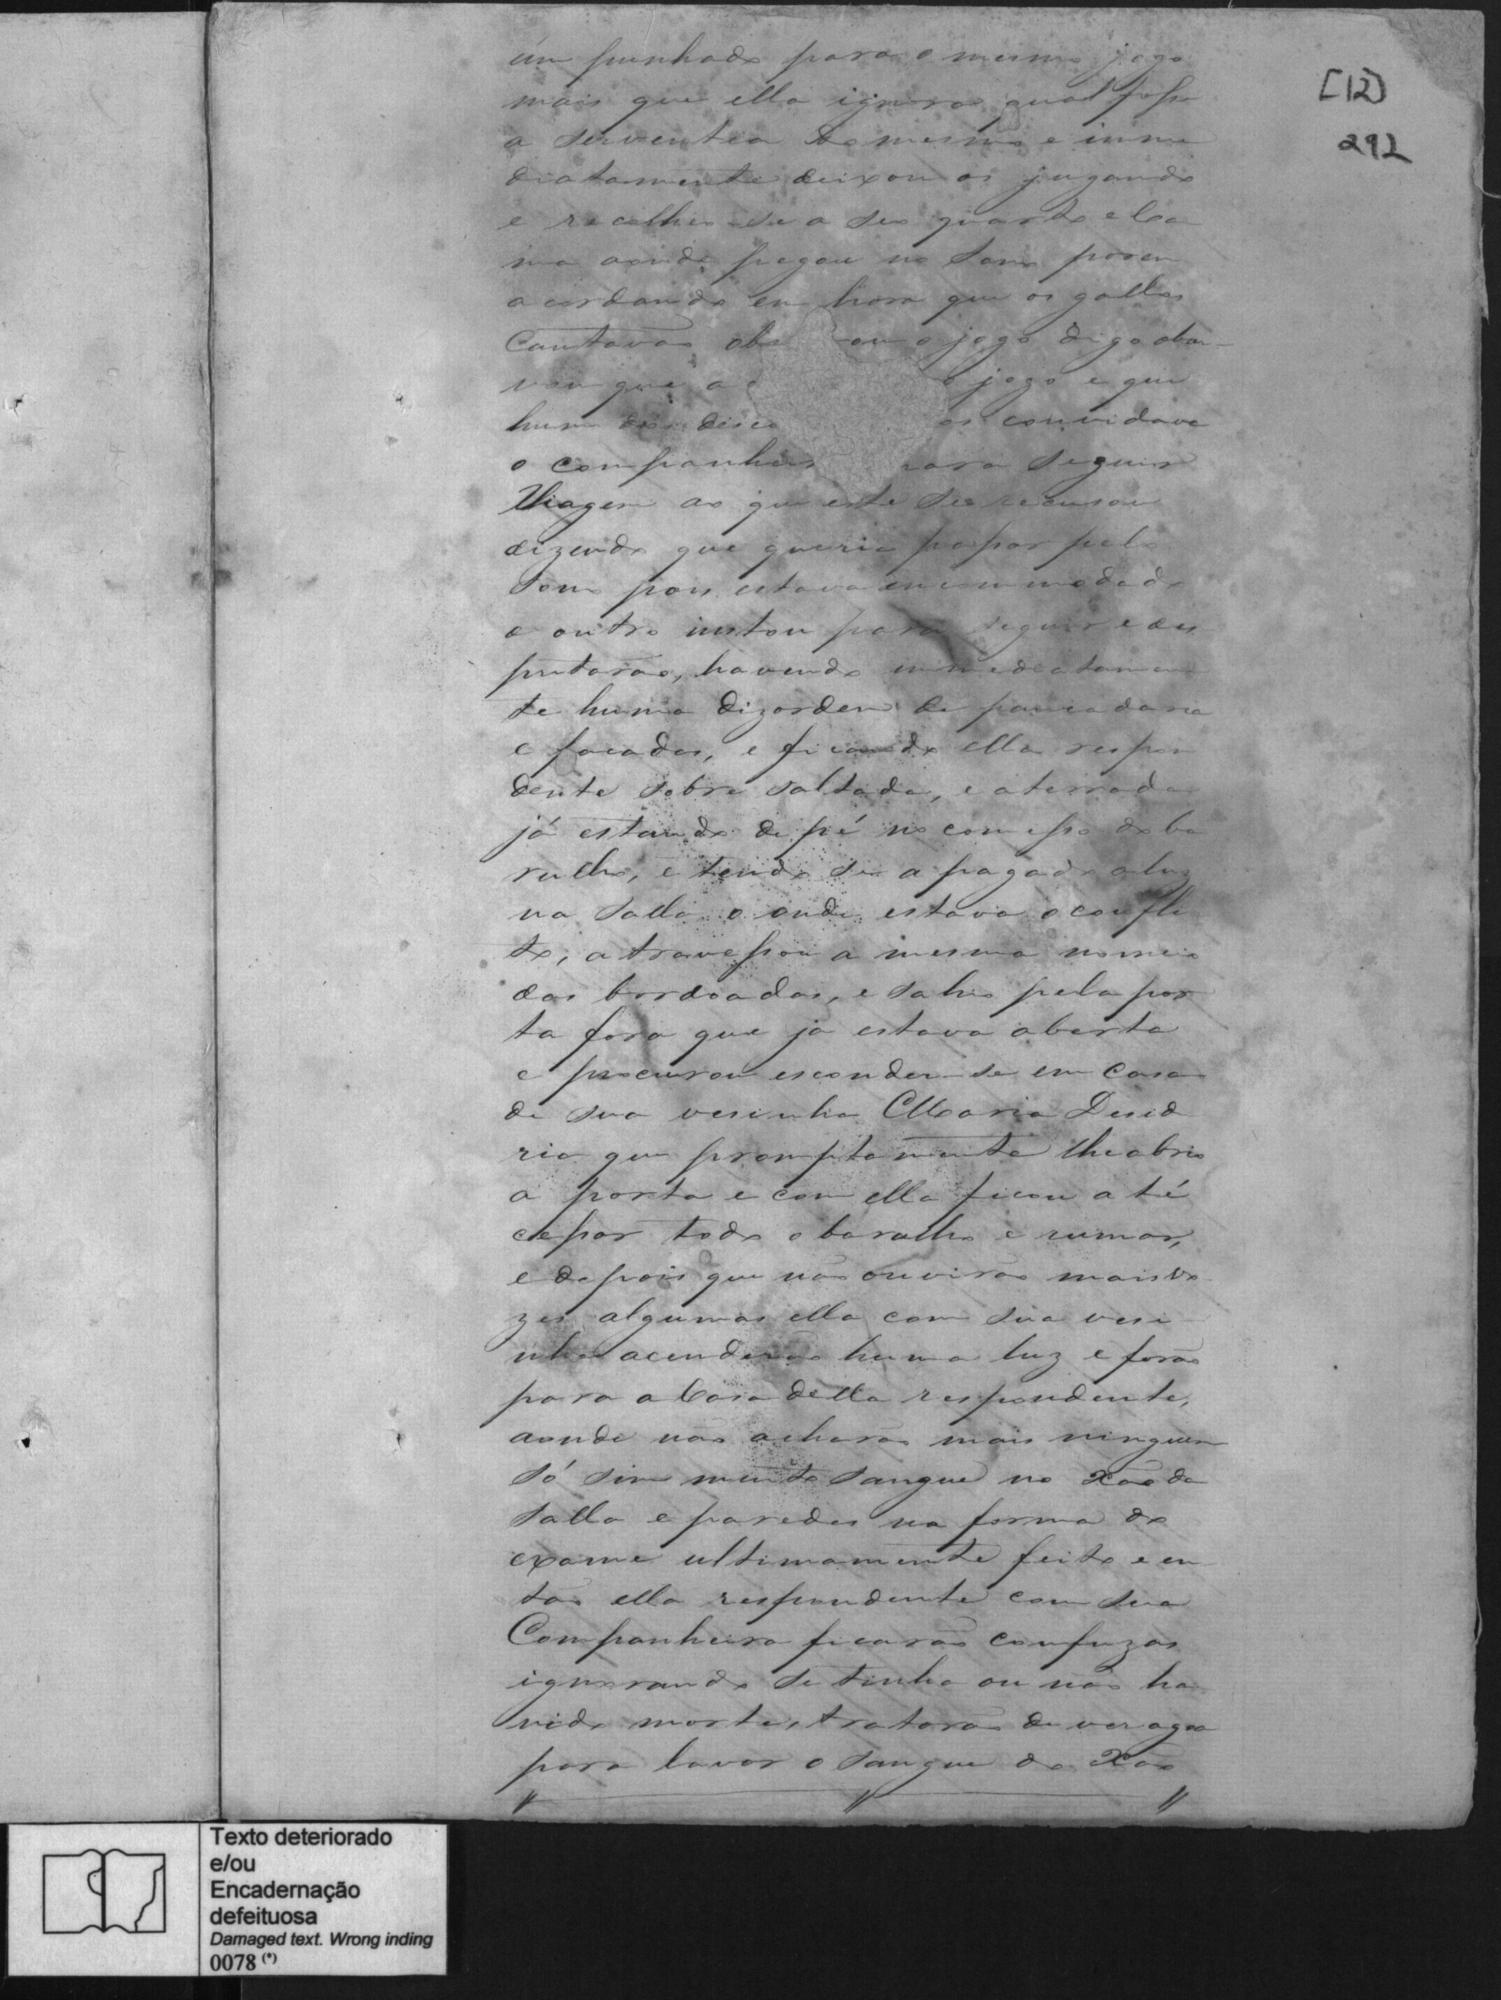 [12]
292
um punhado para o mesmo jogo
mais que ella ignora qual fosse
a serventia do mesmo e imme
diatamente deixou os jugando
e recolheo-se a seo quarto e Ca
ma aonde pegou no Sono porem
acordando em hora que os gallos
Cantavão obs ou o jogo digo obser-
vou que a o jogo e que
hum dos os convidava
o companheiro para Seguir
Viagem ao que este Se recusou
dizendo que queria passar pelo
Sono pois estava encommodado
o outro instou para seguir e dis
putarão, havendo immediatamen
te huma dizordem de pancadaria
e facadas, e ficando ella respon
dente Sobre Saltada, e aterrada
já estando de pé no comesso do ba
rulho, e tendo Se apagado a luz
na Salla aonde estava o confli
to, atravessou a mesma no meio
das bordoadas, e Sahio pela por
ta fora que ja estava aberta
e procurou esconder-se em Casa
de Sua vesinha Maria Desid
ria que promptamente lhe abrio
a porta e com ella ficou até
cessar todo o barulho e rumor,
e depois que não ouvirão mais vo
zes algumas ella com Sua vesi-
nha acenderão huma luz e forão
para a Casa della respondente,
aonde não acharão mais ninguem
Só Sim muito Sangue no Xão da
Salla e paredes na forma do
exame ultimamente feito e en
tão ella respondente com Sua
Companheira ficarão confuzas
ignorando Se tinha ou não ha
vido morte, tratarão de ver agoa
para lavar o Sangue do Xão
Texto deteriorado
e/ou
Encadernação
defeituosa
Damaged text. Wrong inding
0078 (*)